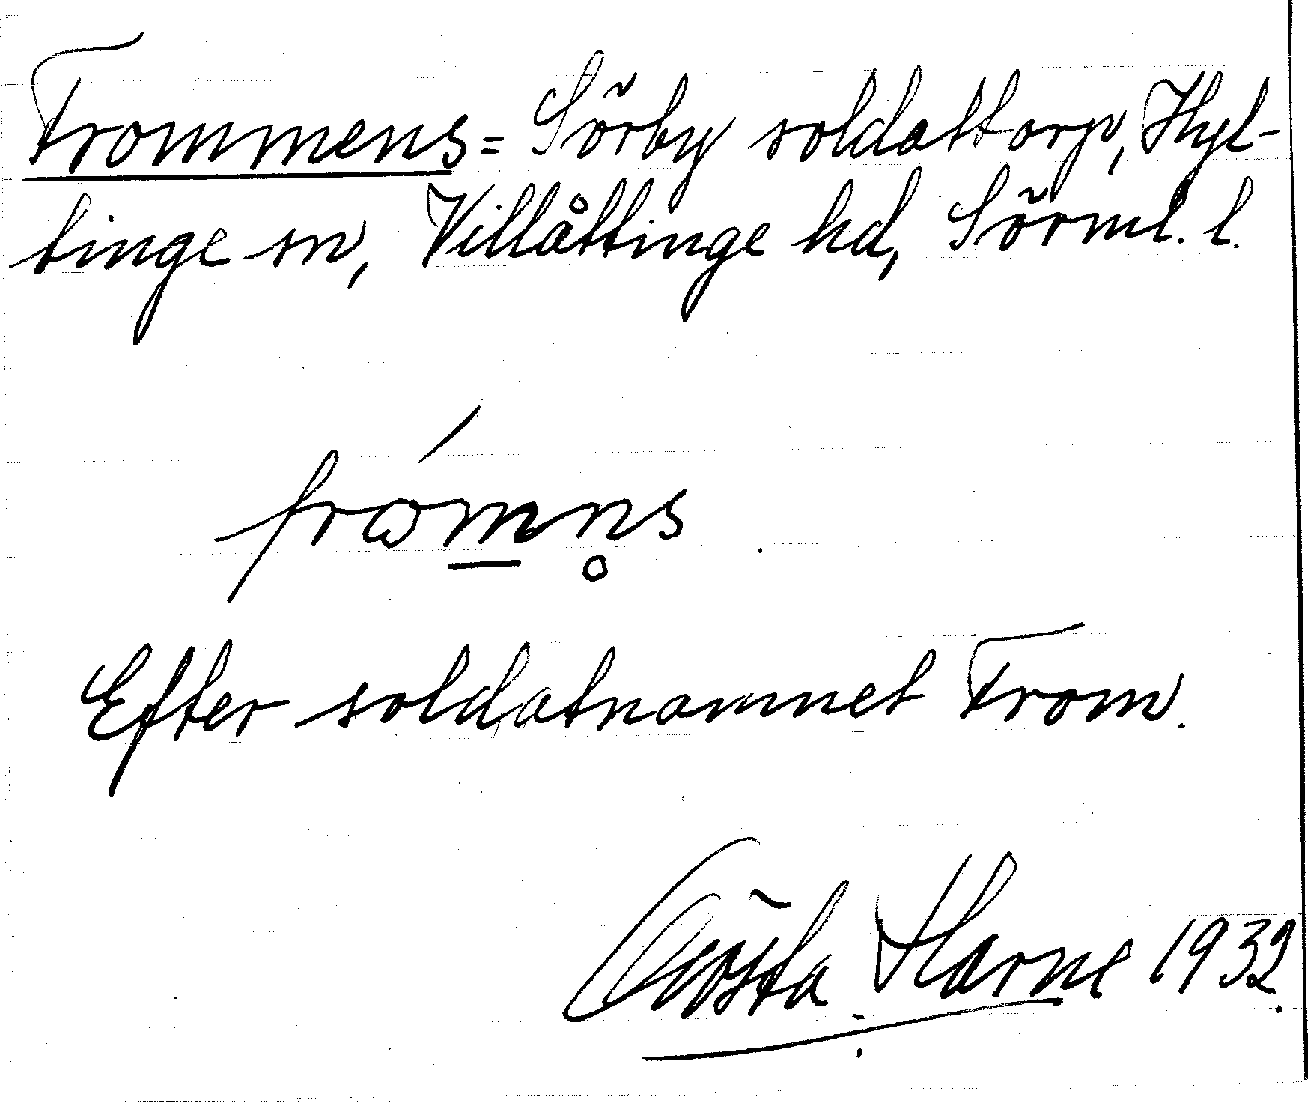 Frommens = Sörby soldattorp, Hyl-
tinge sn, Villåttinge hd, Sörml. l.
Efter soldatnamnet From.
Gösta Harne 1932.